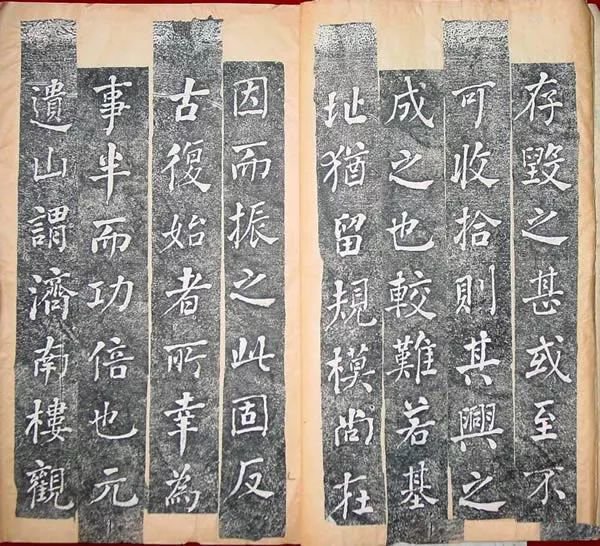 存毀之甚或至不
可收拾則其興之
成之也較難若基
址猶留規模尚在
因而振之此固反
古復始者所幸為
事半而功倍也元
遺山謂濟南樓觀